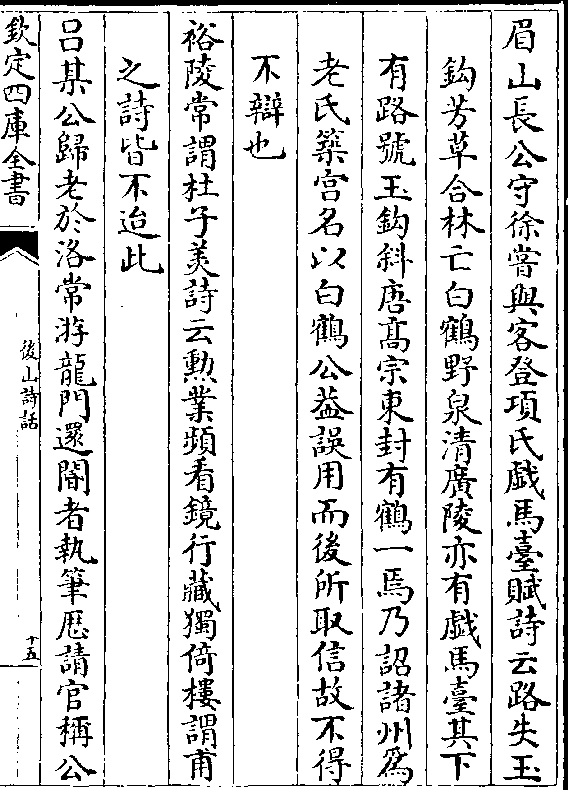 眉山長公守徐嘗與客登項氏戯馬臺賦詩云路失玉
鈎芳草合林亡白鶴野泉清廣陵亦有戯馬臺其下
有路號玉鈎斜唐髙宗東封有鶴一焉乃詔諸州爲
老氏築宫名以白鶴公葢誤用而後所取信故不得
不辯也
裕陵常謂杜子美詩云勲業頻看鏡行藏獨倚樓謂甫
之詩皆不迨此
吕某公歸老於洛常游龍門還閽者執筆厯請官稱公
欽定四庫全書
後山詩話
十五